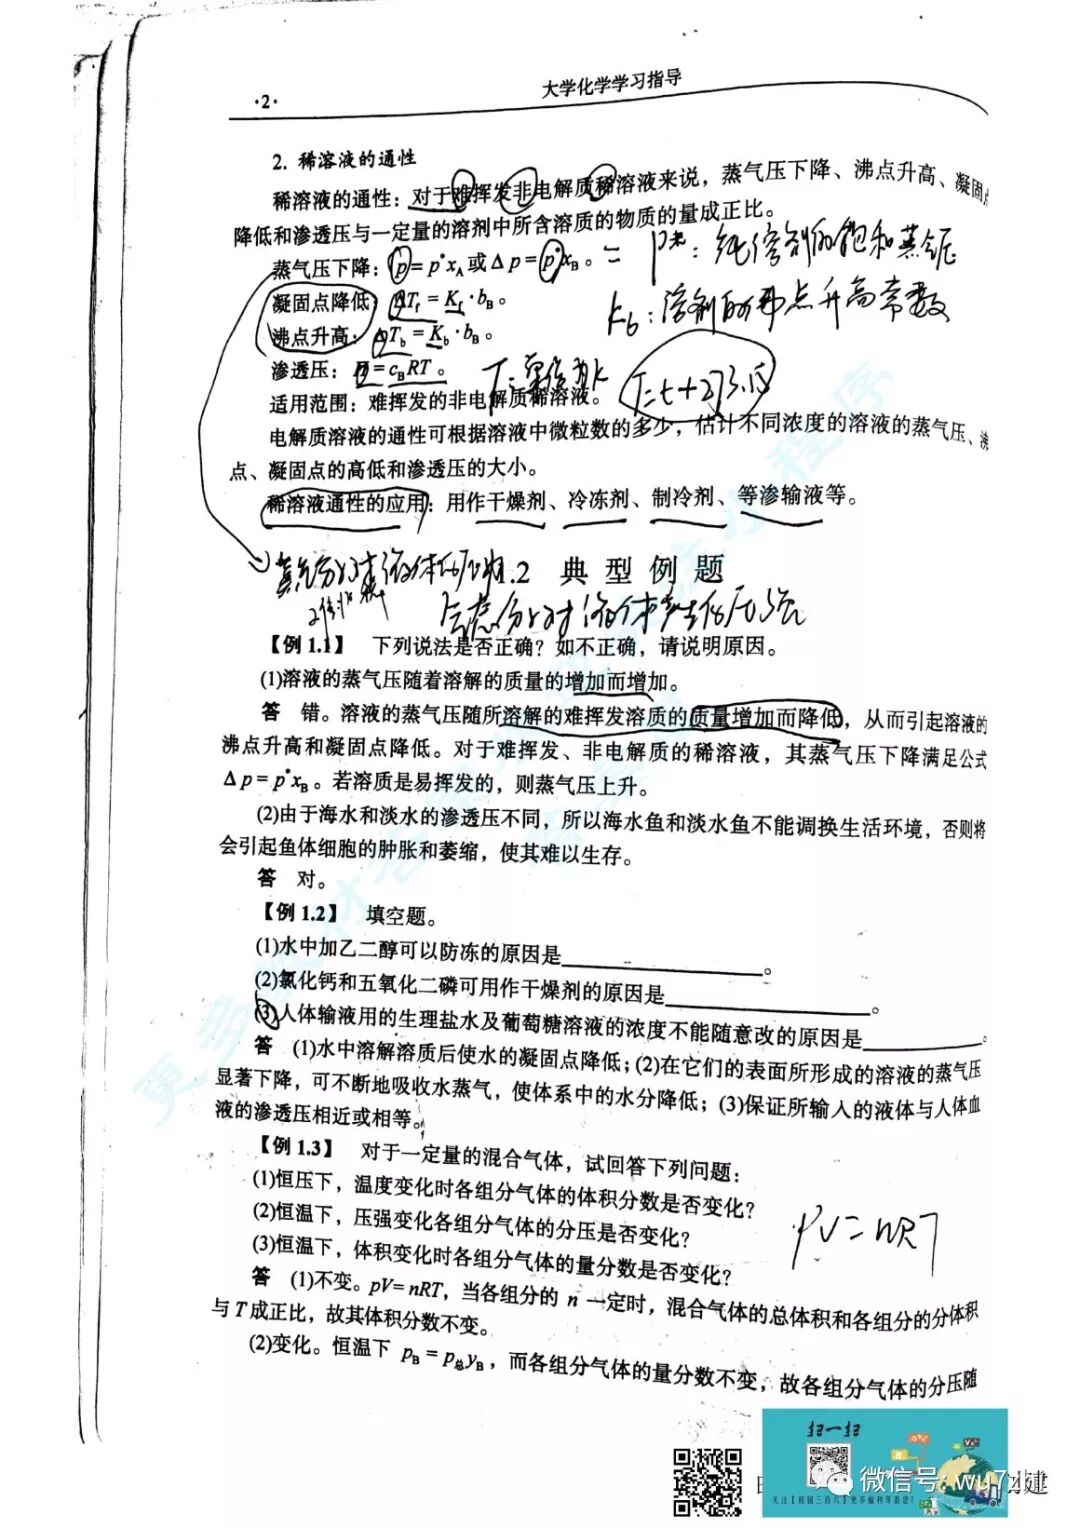 ·2·
大学化学学习指导
2. 稀溶液的通性
稀溶液的通性：对于难挥发非电解质稀溶液来说，蒸气压下降、沸点升高、凝固点
降低和渗透压与一定量的溶剂中所含溶质的物质的量成正比。
蒸气压下降：p = p*xA 或 Δp = p*xB。
p*：纯溶剂的饱和蒸气压
凝固点降低：ΔTf = Kf·bB。
Kb：溶剂的沸点升高常数
沸点升高：ΔTb = Kb·bB。
渗透压：Π = cBRT。
T：单位为K
T=t+273.15
适用范围：难挥发的非电解质稀溶液。
电解质溶液的通性可根据溶液中微粒数的多少，估计不同浓度的溶液的蒸气压、沸
点、凝固点的高低和渗透压的大小。
稀溶液通性的应用：用作干燥剂、冷冻剂、制冷剂、等渗输液等。
1.2 典型例题
气态分子对液体产生的压强
【例 1.1】 下列说法是否正确？如不正确，请说明原因。
(1)溶液的蒸气压随着溶解的质量的增加而增加。
答 错。溶液的蒸气压随所溶解的难挥发溶质的质量增加而降低，从而引起溶液的
沸点升高和凝固点降低。对于难挥发、非电解质的稀溶液，其蒸气压下降满足公式
Δp = p*xB。若溶质是易挥发的，则蒸气压上升。
(2)由于海水和淡水的渗透压不同，所以海水鱼和淡水鱼不能调换生活环境，否则将
会引起鱼体细胞的肿胀和萎缩，使其难以生存。
答 对。
【例 1.2】 填空题。
(1)水中加乙二醇可以防冻的原因是____________。
(2)氯化钙和五氧化二磷可用作干燥剂的原因是____________。
(3)人体输液用的生理盐水及葡萄糖溶液的浓度不能随意改的原因是________。
答 (1)水中溶解溶质后使水的凝固点降低；(2)在它们的表面所形成的溶液的蒸气压
显著下降，可不断地吸收水蒸气，使体系中的水分降低；(3)保证所输入的液体与人体血
液的渗透压相近或相等。
【例 1.3】 对于一定量的混合气体，试回答下列问题：
(1)恒压下，温度变化时各组分气体的体积分数是否变化？
(2)恒温下，压强变化各组分气体的分压是否变化？
(3)恒温下，体积变化时各组分气体的量分数是否变化？
PV=nRT
答 (1)不变。pV=nRT，当各组分的 n 一定时，混合气体的总体积和各组分的分体积
与T成正比，故其体积分数不变。
(2)变化。恒温下 pB = p总yB，而各组分气体的量分数不变，故各组分气体的分压随
扫一扫
微信号: wu7zhi
建